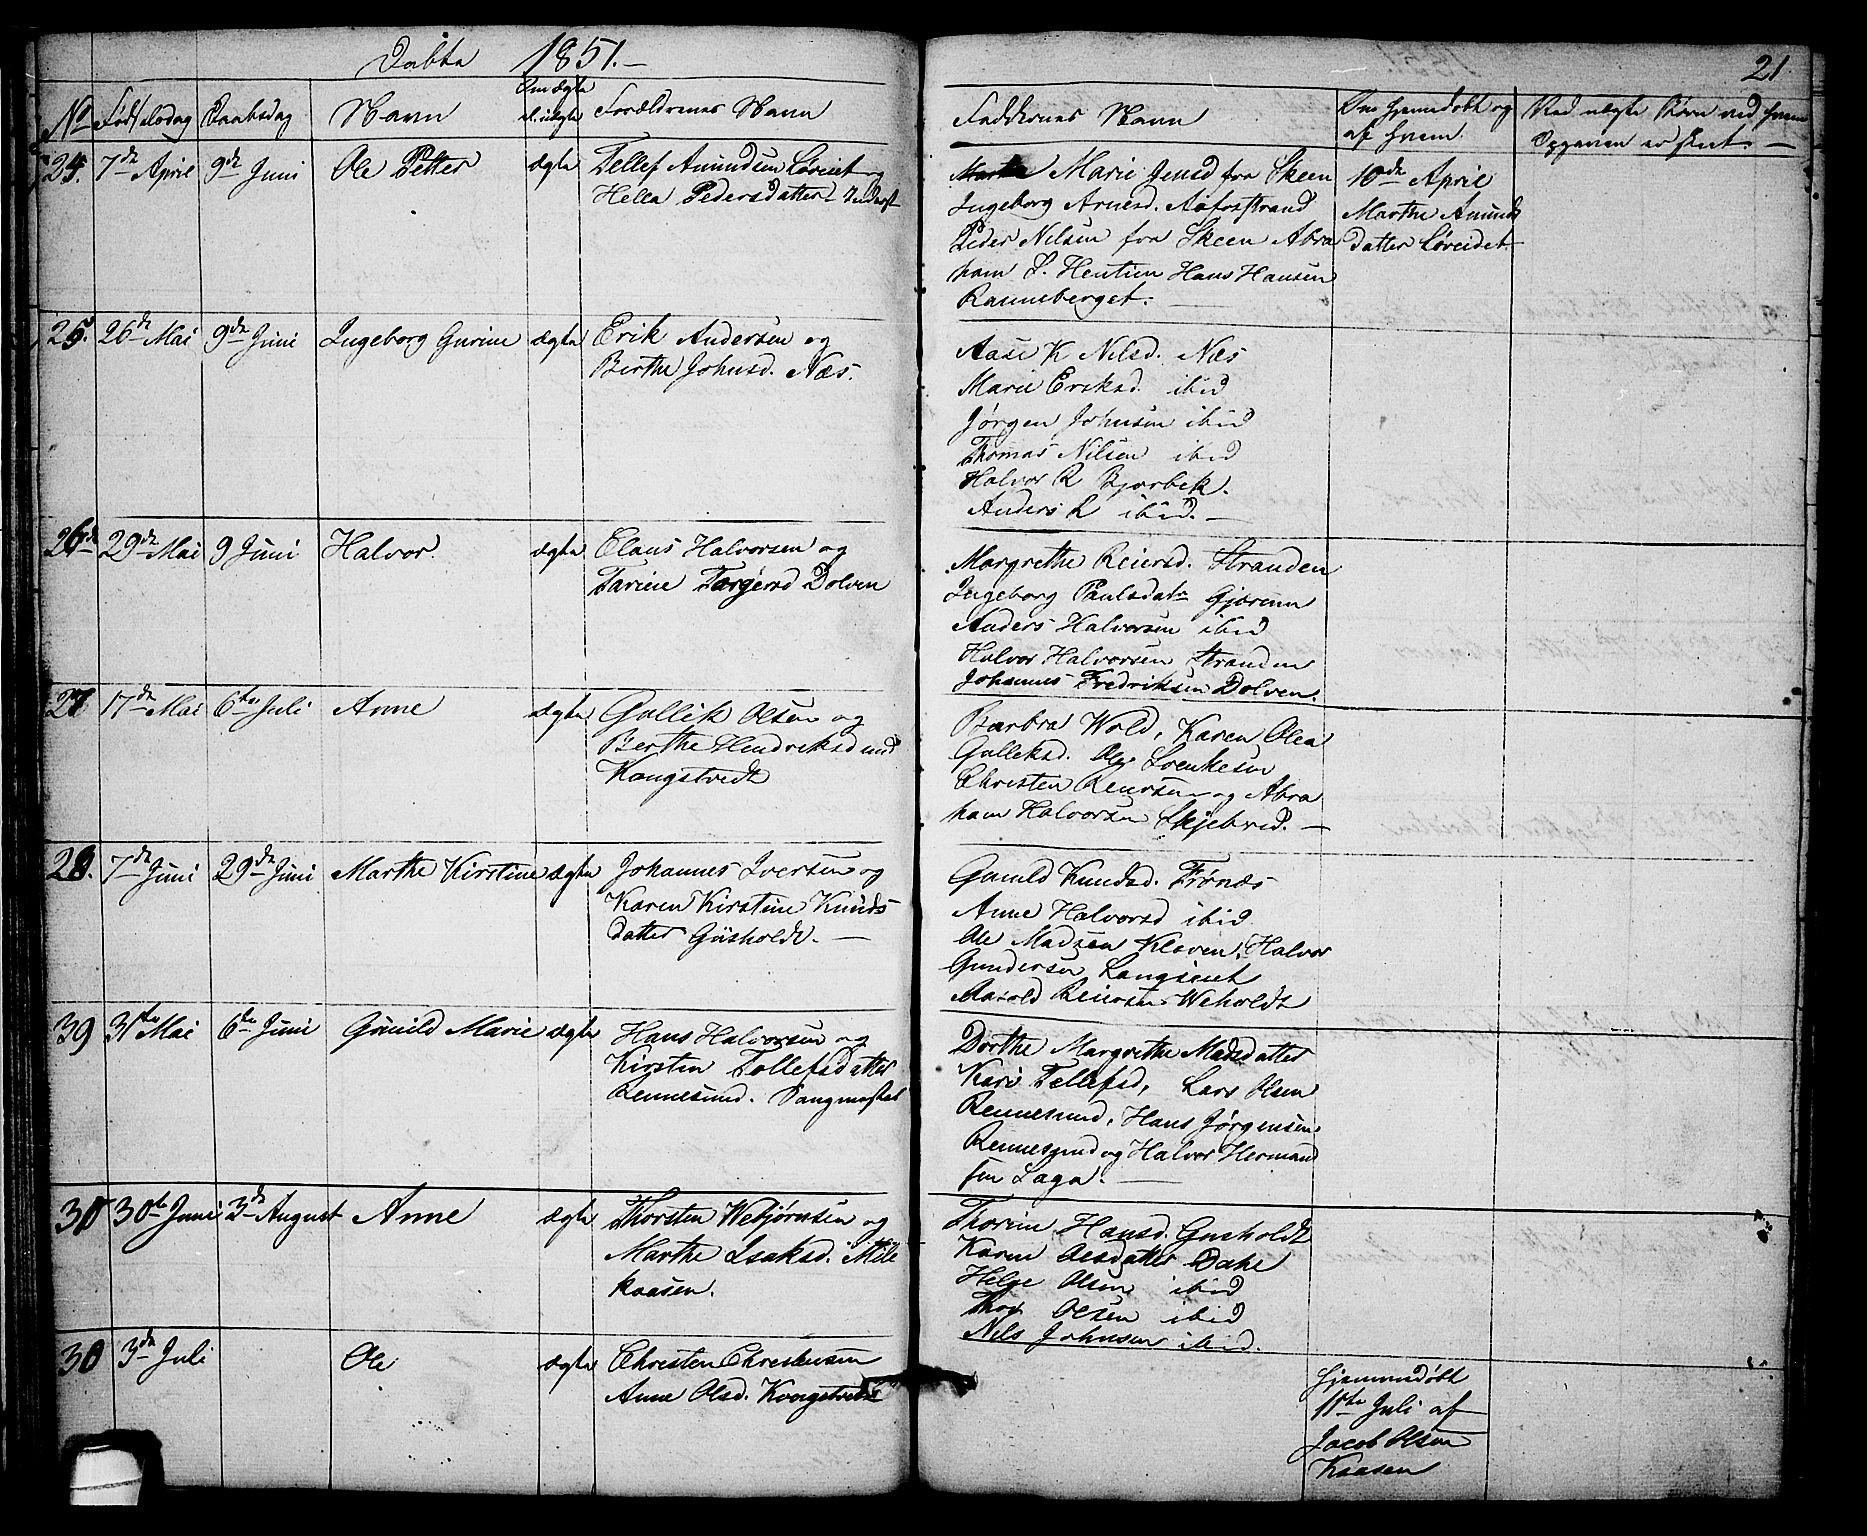 Døbte 1851.—
21
No Fødselsdag Daabsdag Navn Om ægte el. uægte Forældrenes Navn
Faddernes Navn Om hjemmedøbt og af hvem. Ved uægte Børn ved hvem Opgaven er skeet —
24. 7de April 9de Juni Ole Petter ægte Tellef Amundsen Løveidet og
Hella Pedersdatter
Marie Jensd fra Skeen
Ingeborg Arnesd. Aafosstrand
Peder Nilsen fra Skeen Abra
ham S. Hans Hansen
Ranneberget. —
10de April
Marthe Amunds
datter Løveidet
25. 26de Mai 9de Juni Ingeborg Gurine ægte Erik Andersen og
Berthe Johnsd. Næs.
Aase K Nilsd. Næs
Marie Eriksd. ibid
Jørgen Johnsen ibid
Thomas Nilsen ibid
Halvor R Bjorbek.
Anders R ibid. —
26de 29de Mai 9 Juni Halvor. ægte Claus Halvorsen og
Tarine Torgersd Dolven
Margrethe Reiersd. Stranden
Ingeborg Paulsdatr
Anders Halvorsen ibid
Halvor Halvorsen Stranden
Johannes Fredriksen Dolven.
27 17de Mai 6te Juli Anne ægte Gullik Olsen og
Berthe Hendriksd
Kongstvedt
Barbra Wold, Karen Olea
Galleksd. Ole Svenkesen
Christen Reiersen og Abra
ham Halvorsen Skjebred. —
28. 7de Juni 29de Juni Marthe Kirstine ægte Johannes Iversen og
Karen Kirstine Knuds
datter Gusholdt. —
Gunild Knudsd. Frønæs
Anne Halvorsd ibid
Ole Madsen Kleven, Halvor
Gundersen
Aasold Reiersen Weholdt
39 31te Mai 6te Juni Gunild Marie ægte Hans Halvorsen og
Kirsten Tollefsdatter
Rennesund.
Dorthe Margrethe Madsdatter
Kari Tellefsd, Lars Olsen
Rennesund, Hans Jørgensen
Rennesund og Halvor Herman
sen Saga. —
30 30te Juni 3de August Anne ægte Thorsten Webjørnsen og
Marthe Isaksd. Mele
kaasen.
Thorine Hansd. Gusholdt
Karen Olesdatter Dahl
Helge Olsen ibid
Thor Olsen ibid
Nils Johnsen ibid.
30 3de Juli Ole ægte Christen Christensen
Anne Olsd. Kongstvedt
Hjemmedøbt
11te Juli af
Jacob Olsen
Kaasen